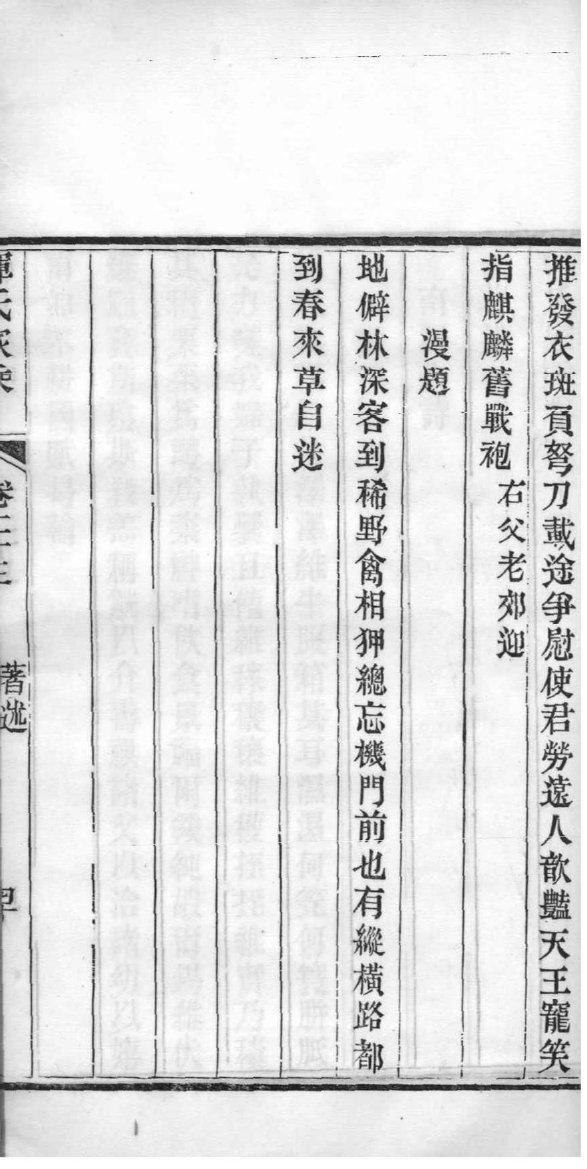 推發衣斑頁弩刀載途爭慰使君勞遠人歆豔天王寵笑
指麒麟舊戰袍　右父老郊迎
漫題
地僻林深客到稀野禽相狎總忘機門前也有縱橫路都
到春來草自迷
惲氏家乘　卷　著述